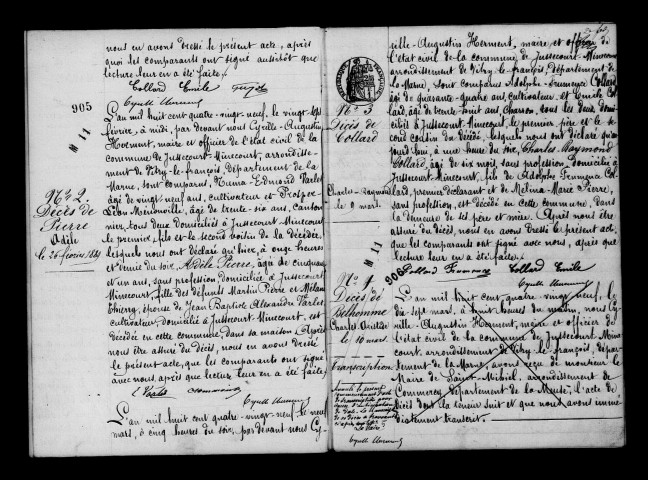 nous en avons dressé le présent acte, après
quoi les comparants ont signé aussitôt que
lecture leur en a été faite.
Collard Emile
Cyrille Herment
905
M 11
N° 2
Décès de
Pierre
Adèle
le 26 février 1889
L'an mil huit cent quatre-vingt-neuf, le vingt-sept
février, à midi, par devant nous Cyrille-Augustin
Herment, maire et officier de l'état civil de la
commune de Jussecourt-Minecourt, arrondisse-
ment de Vitry-le-françois, Département de la
Marne, sont comparus, Numa-Edmond Varlet
âgé de vingt-neuf ans, cultivateur et Prosper
Léon, âgé de trente-six ans, Canton-
nier, tous deux domiciliés à Jussecourt-Minecourt
le premier, fils et le second voisin de la décédée,
lesquels nous ont déclaré qu'hier, à onze heures
et demie du soir, Adèle Pierre, âgée de cinquante
et un ans, sans profession, domiciliée à Jussecourt
Minecourt, fille des défunts Martin Pierre et Mélanie
Thierry, épouse de Jean Baptiste Alexandre Varlet
cultivateur, domicilié à Jussecourt Minecourt, est
décédée en cette commune, dans sa maison. Après
nous être assuré du décès, nous en avons dressé
le présent acte, que les comparants ont signé
avec nous, après que lecture leur en a été faite.
E. Varlet
Cyrille Herment
L'an mil huit cent quatre-vingt-neuf le neuf
mars, à cinq heures du soir, par devant nous Cy-
N° 3
Décès de
Collard
Charles-Raymond
le 9 mars
M 11
rille-Augustin Herment, maire et officier de
l'état civil de la commune de Jussecourt-Minecourt
arrondissement de Vitry-le-françois, département de
la Marne, sont comparus Adolphe-Fumence Collard
âgé de quarante-quatre ans, cultivateur et Emile Col-
lard, âgé de trente-huit ans, Charron, tous les deux domi-
ciliés à Jussecourt-Minecourt, le premier père et le se-
cond cousin du décédé, lesquels nous ont déclaré qu'au-
jourd'hui, à une heure du soir, Charles Raymond
Collard, âgé de six mois, sans profession, domicilié à
Jussecourt-Minecourt, fils de Adolphe Fumence Col-
lard, premier déclarant et de Melina-Marie Pierre,
sans profession, est décédé en cette commune, dans
la demeure de ses père et mère. Après nous être
assuré du décès, nous en avons dressé le présent acte,
que les comparants ont signé avec nous, après que
lecture leur en a été faite.
Collard Fumence Collard Emile
Cyrille Herment
906
N° 4
Décès de
Delhomme
Charles
le 10 mars
Transcription
L'an mil huit cent quatre-vingt-neuf, le
dix-sept mars, à huit heures du matin, nous Cy-
rille-Augustin Herment, maire et officier de
l'état civil de la commune de Jussecourt Mine-
court, arrondissement de Vitry-le-françois, dépar-
tement de la Marne, avons reçu de monsieur le
Maire de Saint-Mihiel, arrondissement de
Commercy, département de la Meuse, l'acte de
décès dont la teneur suit et que nous avons immé-
diatement transcrit.
Cyrille Herment